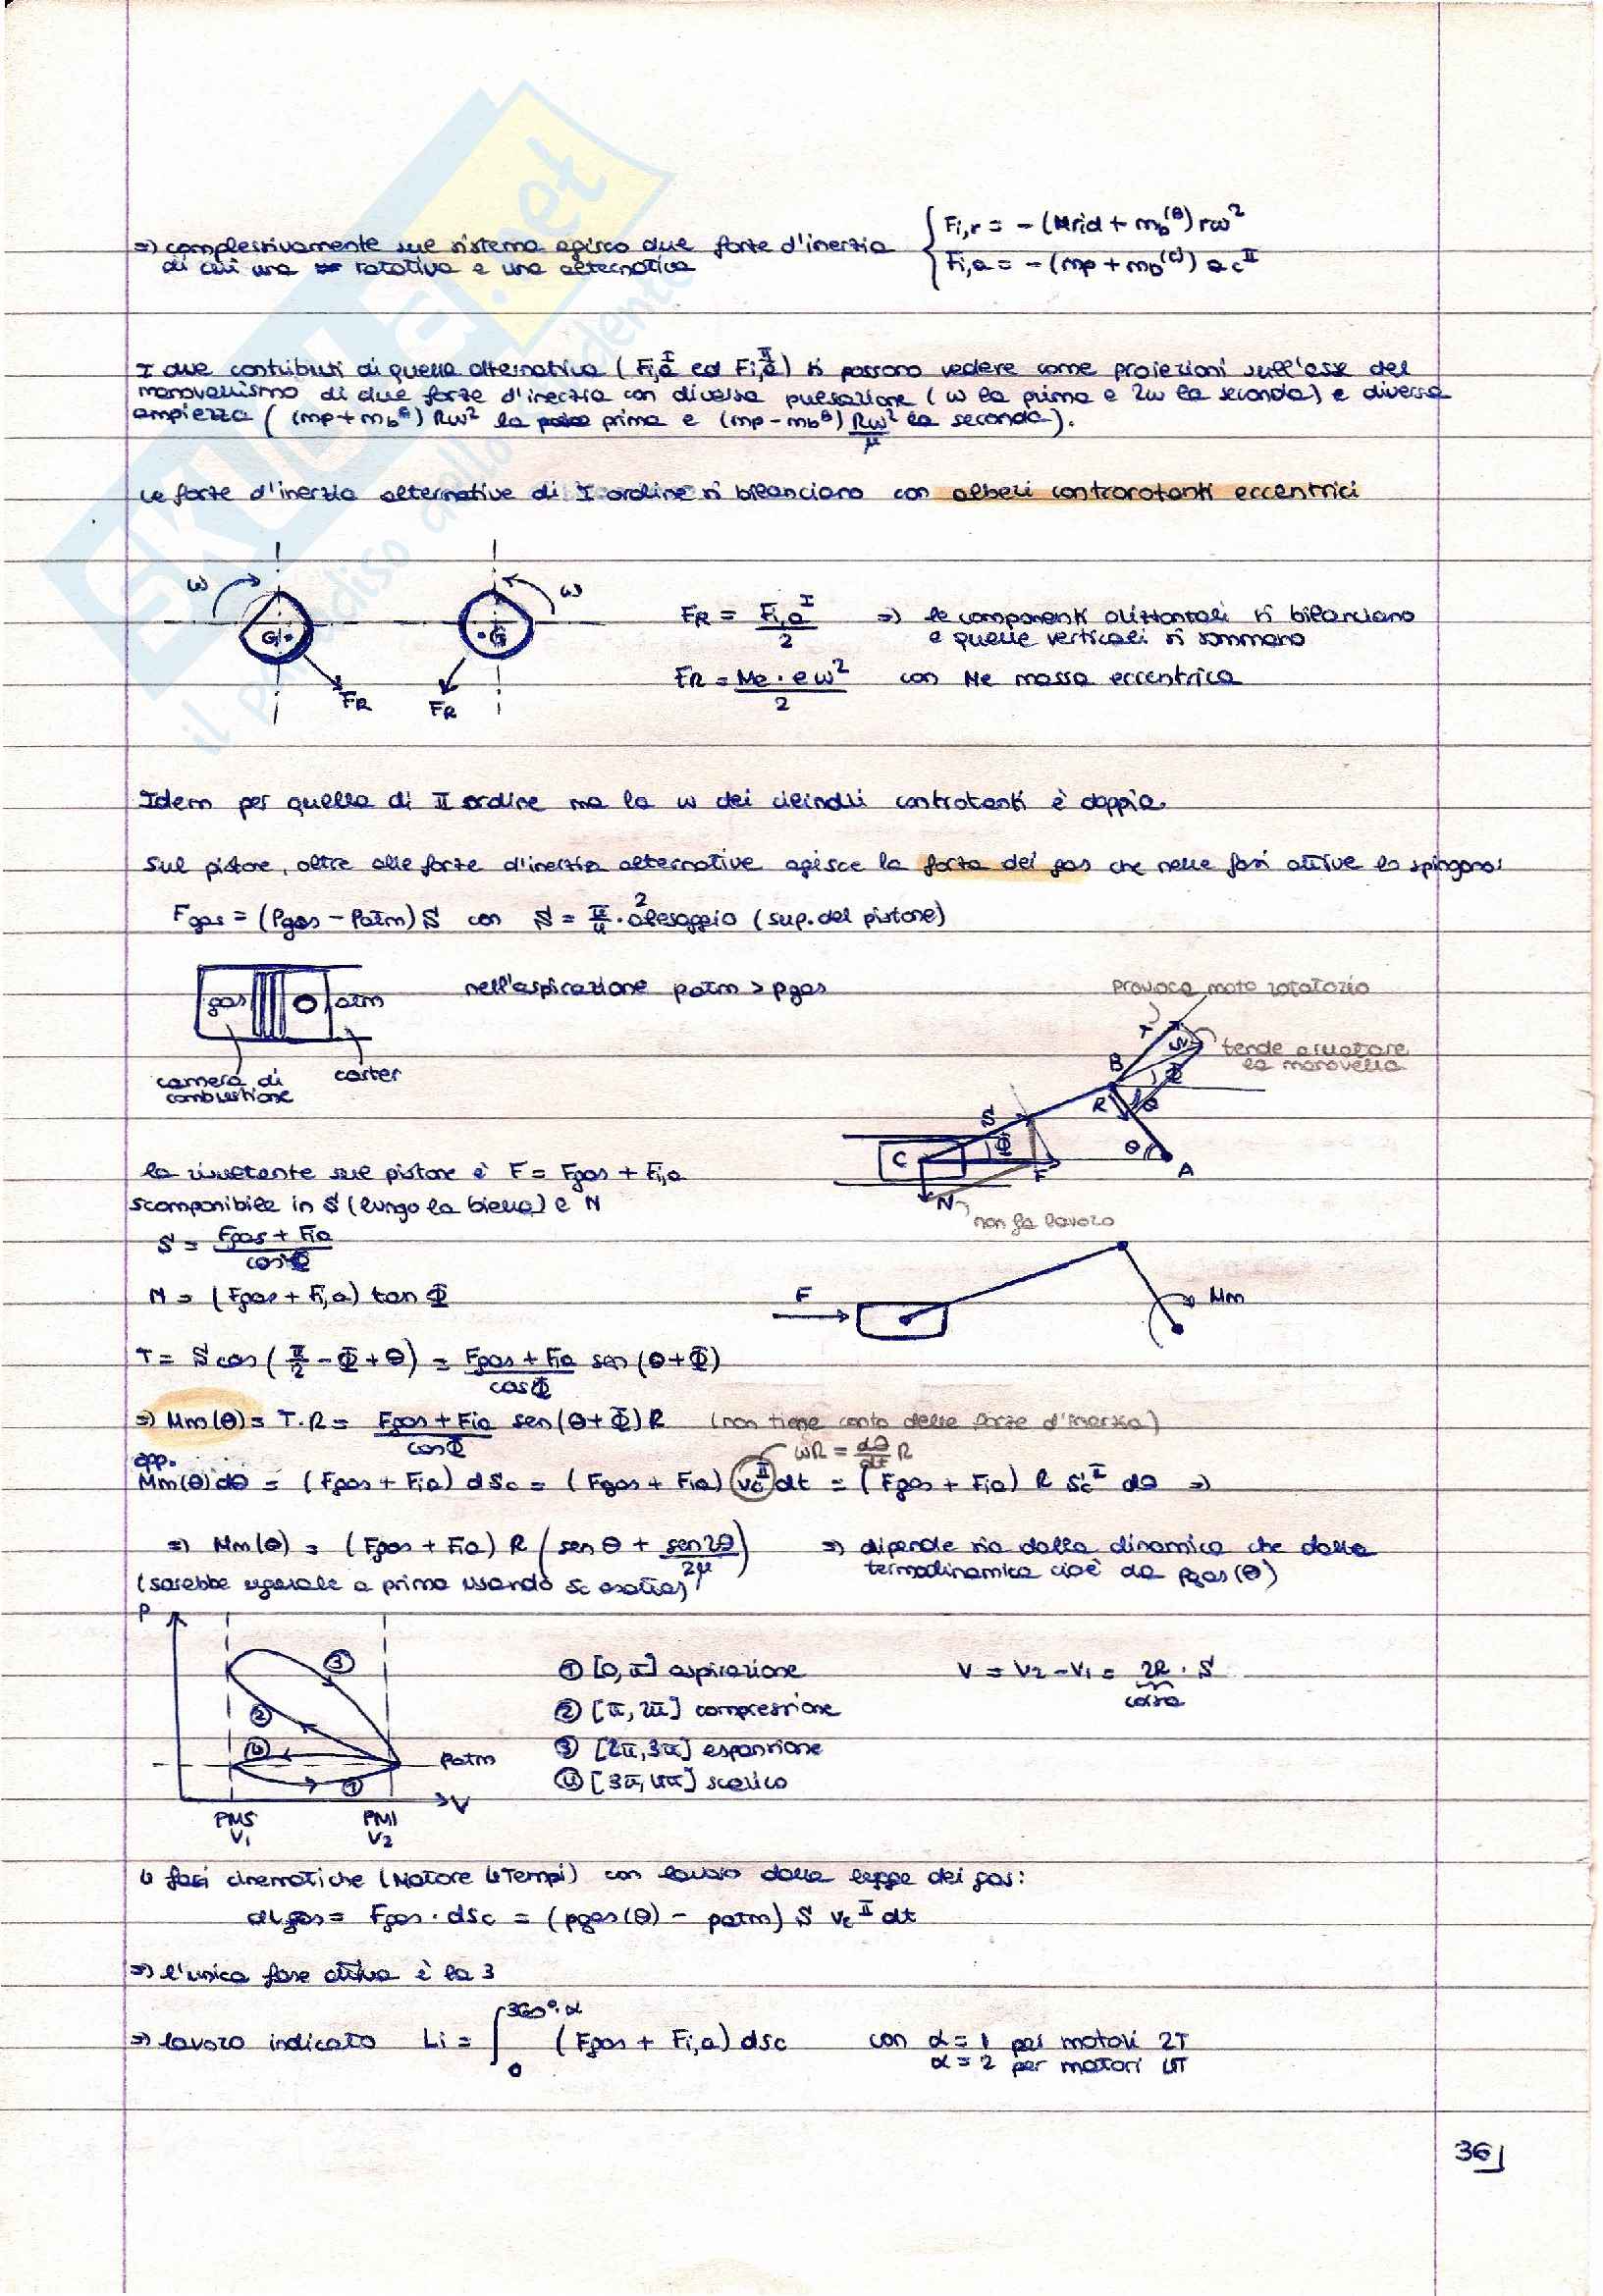 => complessivamente sul sistema agisco due forze d'inerzia { Fi,r = -(Mrid + mb^(B)) rω²
di cui una rotativa e una alternativa { Fi,a = -(mp + mb^(C)) ac^II
I due contributi di quella alternativa (Fi,a^I ed Fi,a^II) si possono vedere come proiezioni sull'asse del
manovellismo di due forze d'inerzia con diversa pulsazione (ω la prima e 2ω la seconda) e diversa
ampiezza ( (mp+mb^B) Rω² la prima e (mp-mb^B) Rω²/μ la seconda).
Le forze d'inerzia alternative di I ordine si bilanciano con alberi controrotanti eccentrici
ω ω
G G
FR FR
FR = Fi,a^I / 2 => le componenti orizzontali si bilanciano
e quelle verticali si sommano
FR = Me · e ω² / 2 con Me massa eccentrica
Idem per quella di II ordine ma la ω dei cilindri controtanti è doppia.
Sul pistone, oltre alle forze d'inerzia alternative agisce la forza dei gas che nelle fasi attive lo spingono:
Fgas = (Pgas - Patm) S con S = π/4 · alesaggio² (sup. del pistone)
gas atm
nell'aspirazione patm > pgas
camera di
combustione
carter
provoca moto rotatorio
tende a ruotare
la manovella
T N B Φ R θ S C Φ F θ A
N
non fa lavoro
la risultante sul pistone è F = Fgas + Fi,a
scomponibile in S (lungo la biella) e N
S = Fgas + Fia / cosΦ
N = (Fgas + Fi,a) tan Φ
F Mm
T = S cos (π/2 - Φ + θ) = Fgas + Fia / cosΦ sen (θ+Φ)
=> Mm(θ) = T·R = Fgas + Fia / cosΦ sen(θ+Φ) R (non tiene conto delle forze d'inerzia)
opp.
ωR = dθ/dt R
Mm(θ)dθ = (Fgas + Fia) dSc = (Fgas + Fia) vc^II dt = (Fgas + Fia) R Sc'^II dθ =>
=> Mm(θ) = (Fgas + Fia) R (sen θ + sen2θ/2μ) => dipende sia dalla dinamica che dalla
(sarebbe uguale a prima usando sc esatta) termodinamica cioè da pgas(θ)
P
③
②
④
①
patm
V
PMS
V1
PMI
V2
① [0, π] aspirazione
② [π, 2π] compressione
③ [2π, 3π] espansione
④ [3π, 4π] scarico
V = V2 - V1 = 2R · S
corsa
4 fasi cinematiche (Motore 4Tempi) con lavoro dalla legge dei gas:
dLgas = Fgas · dSc = (pgas(θ) - patm) S vc^II dt
=> l'unica fase attiva è la 3
=> lavoro indicato Li = ∫₀^360°·α (Fgas + Fi,a) dSc con α = 1 per motori 2T
α = 2 per motori 4T
36